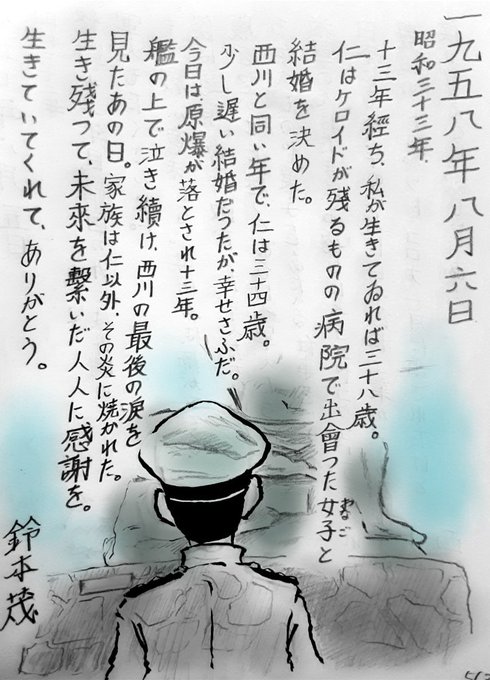 一九五八年 八月六日
昭和三十三年.
十三年經ち、私が生きてゐれば三十八歳。
仁はケロイドが残るものの病院で出會つた女子と
をなご
結婚を決めた。
西川と同い年で、仁は三十四歳。
少し遅い結婚だつたが、幸せさふだ。
今日は、原爆が落とされ十三年。
艦の上で泣き續け、西川の最後の涙を
見たあの日。家族は仁以外、その炎に焼かれた。
生き残つて、未來を繋いだ人人に感謝を。
生きていてくれて、ありがとう。
鈴木茂